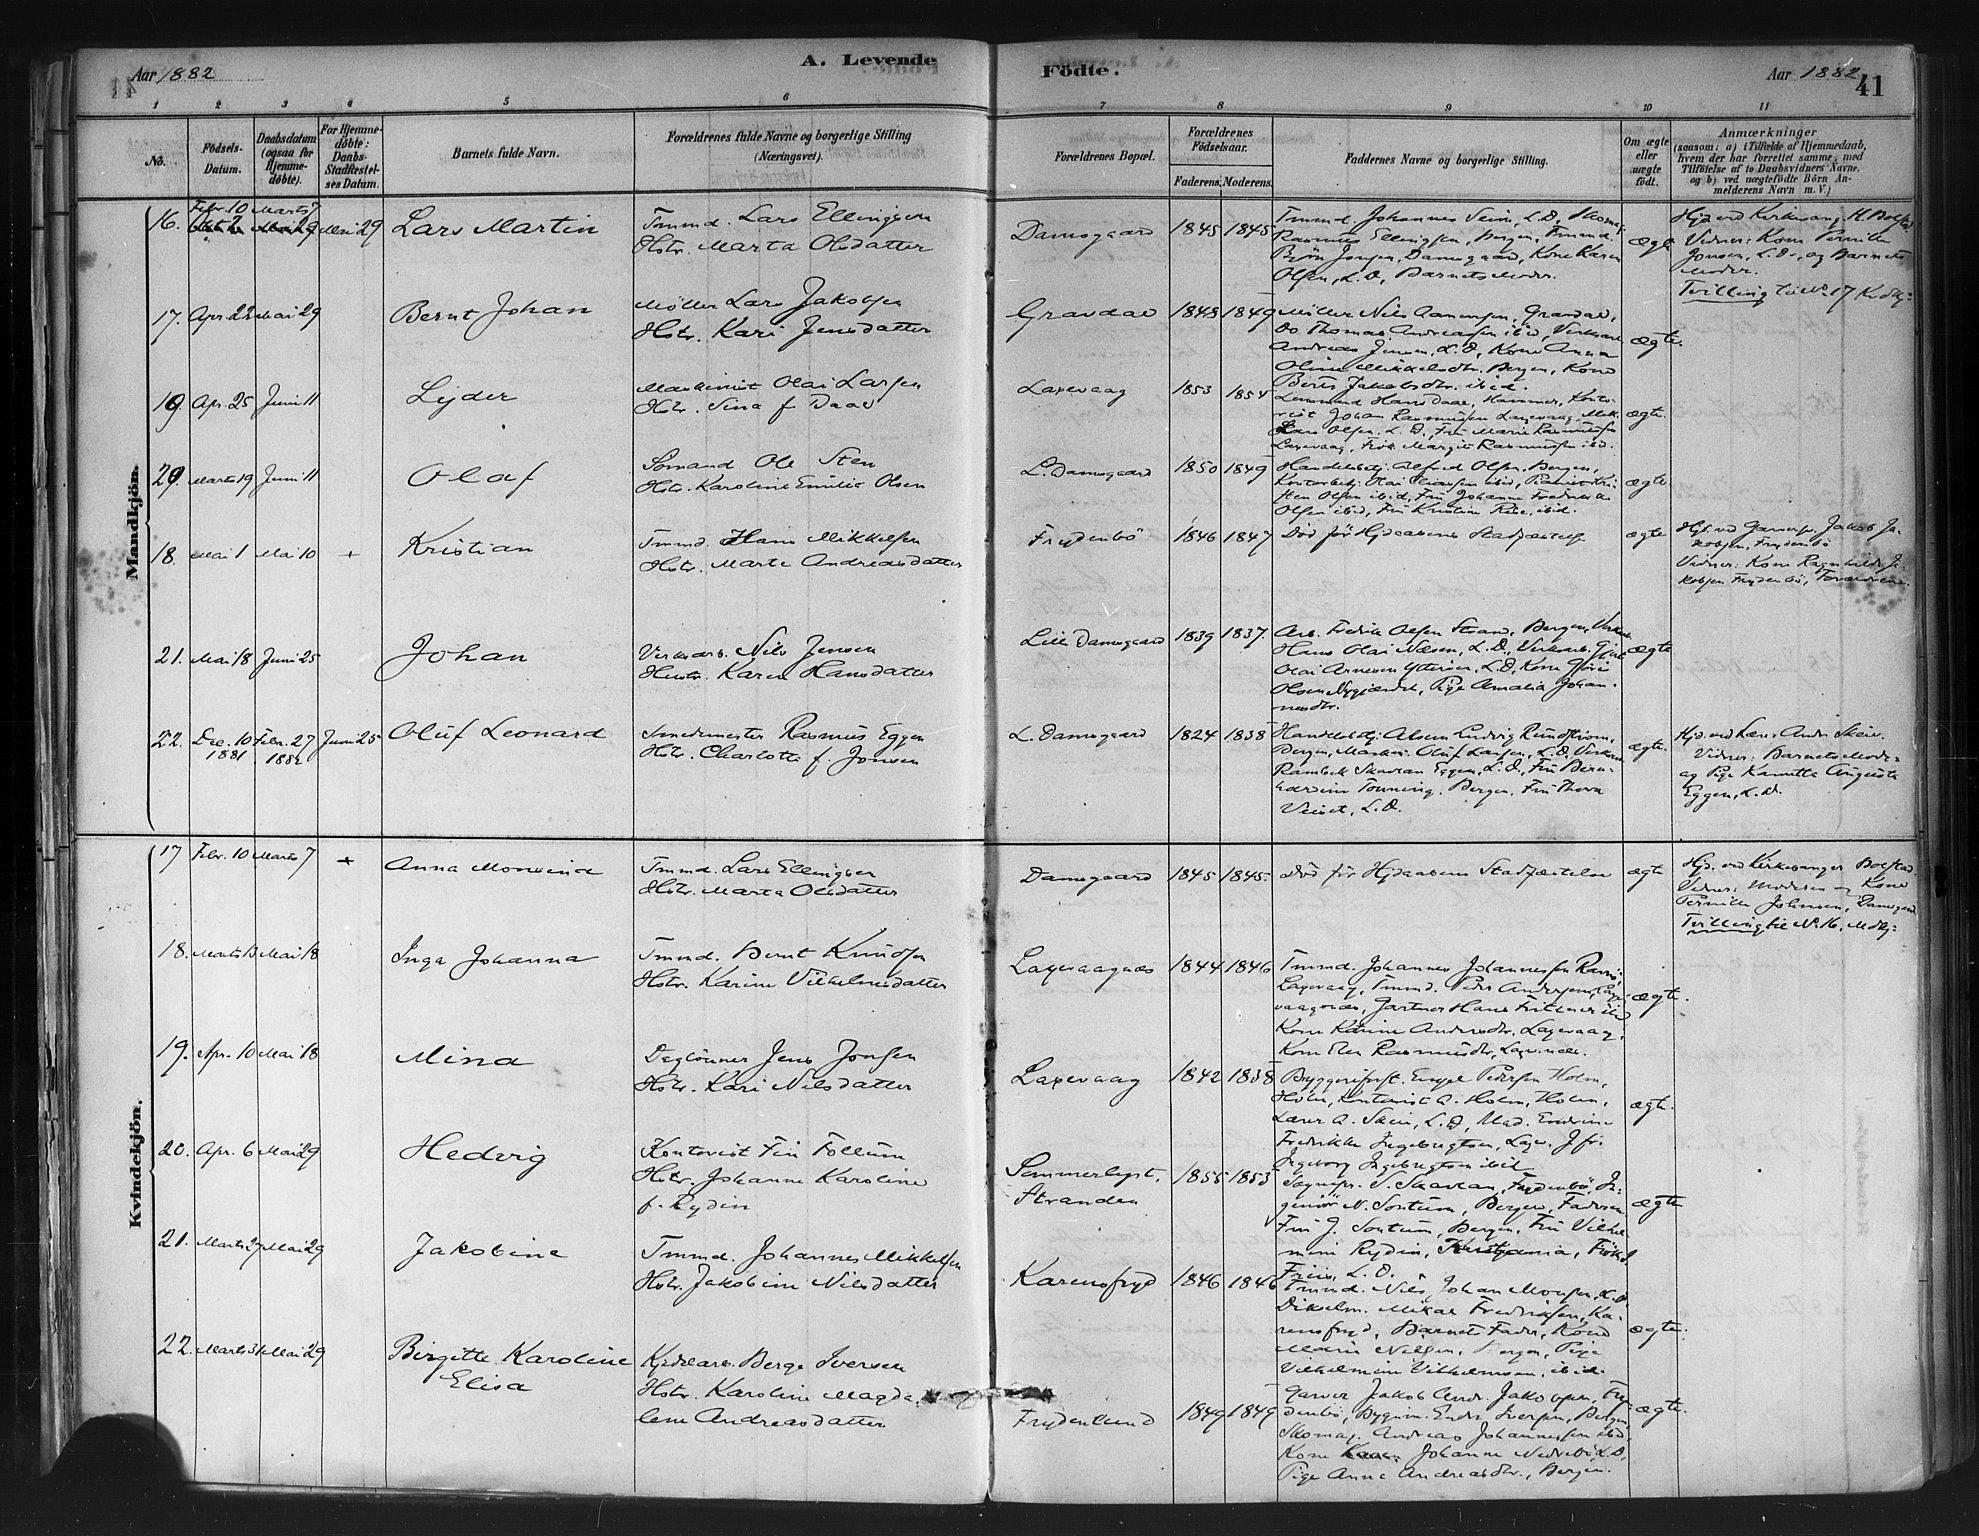 Aar 1882
A. Levende
Födte.
Aar 1882
41
1 2 3 4 5 6 7 8 9 10 11
No.
Födsels-Datum.
Daabsdatum (ogsaa for Hjemme-döbte).
For Hjemme-döbte: Daabs-Stadfæstel-ses Datum.
Barnets fulde Navn.
Forældrenes fulde Navne og borgerlige Stilling (Næringsvei).
Forældrenes Bopæl.
Forældrenes Födselsaar.
Faderens. Moderens.
Faddernes Navne og borgerlige Stilling.
Om ægte eller uægte födt.
Anmærkninger
(saasom: a) i Tilfælde af Hjemmedaab, hvem der har forrettet samme, med Tilföielse af to Daabsvidners Navne. og b) ved uægtefödte Börn An-melderens Navn m. V.)
Mandkjön.
16. Febr. 10 Marts 7 Mai 29 Lars Martin
Tmmd. Lars Ellingsen
Hstr. Marta Olsdatter
Damsgaard 1845 1845
Tmmd. Johannes Seim, L.D, Skomag.
Rasmus Ellingsen, Bergen, Tmmd.
Björn Jonsen, Damsgaard, Kone Karen
Olsen, L.D, Barnets Moder.
ægte
Hjd. ved Kirkesang. H. Bolstad
Vidner: Kone Pernille
Jonsen, L.D., og Barnets
Moder.
Tvilling til No 17 Kvdkj:
17. Apr. 22 Mai 29 Bernt Johan
Möller Lars Jakobsen
Hstr. Kari Jensdatter
Gravdal 1848 1849
Möller Nils Aamunsen, Gravdal,
Do Thomas Andreassen ibid, Verksarb.
Andreas Jensen, L.D, Kone Anna
Oline Mikkelsdtr. Bergen, Kone
Berte Jakobsdtr. ibid.
ægte.
19. Apr. 25 Juni 11 Lyder
Maskinist Olai Larsen
Hstr. Sina f. Daae
Laxevaag 1853 1854
Lensmand Hans Daae, Hammer, Konto-
rist Johan Rasmussen Laxevaag, Mek.
Lars Olsen, L.D, Frü Marie Rasmussen
Laxevaag, Frök. Margit Rasmussen ibid.
ægte.
20. Marts 19 Juni 11 Olaf
Sömand Ole Sten
Hstr. Karoline Emilie Olsen
L. Damsgaard 1850 1849
Handelsbtj. Alfred Olsen, Bergen,
Olsen ibid, Frü Kristine Riise, ibid.
ægte
18. Mai 1 Mai 10 + Kristian
Tmmd. Hans Mikkelsen
Hstr. Marte Andreasdatter
Frydenbö 1846 1847
Död för Hjdaabens Stadfæstelse
ægte
Hjd. ved Garversv. Jakob Ja-
kobsen, Frydenbö
Vidner: Kone Ragnhilde Ja-
kobsen Frydenbö, Forældrene.
21. Mai 18 Juni 25 Johan
Verksarb. Nils Jensen
Hustr. Karen Hansdatter
Lille Damsgaard 1839 1837.
Arb. Fredrik Olsen Strand, Bergen, Verksarb.
Hans Olai Næsen, L.D., Verksarb. Gjert
Olai Arnesen Ytteröen, L.D, Kone Gjöri
Olsen Nygjærdet, Pige Amalia Johan-
nesdtr.
ægte
22. Dec. 10 1881 Febr. 27 1882 Juni 25 Oluf Leonard
Smedemester Rasmus Eggen
Hstr. Charlotte f. Jonsen
L. Damsgaard 1824 1838
Handelsbtj. Aksen Ludvig Rundstrom,
Bergen, Maskin. Oluf Larsen, L.D, Verksarb.
Rambek Skavran Eggen, L.D., Frü Bern-
hardine Tonning, Bergen, Frü Thora
Veiset, L.D.
ægte.
Hjd. ved Lær. Andr. Skeie.
Vidner: Barnets Moder
og Pige Kamitta Auguste
Eggen, L.D.
Kvindekjön.
17 Febr. 10 Marts 7 + Anna Monsine
Tmmd. Lars Ellingsen
Hstr. Marta Olsdatter
Damsgaard 1845 1845
Död för Hjdaabens Stadfæstelse
ægte
Hjd. ved Kirkesanger Bolstad.
Vidner: Moderen og Kone
Pernille Johnsen, Damsgaard
Tvilling til No 16, Mdkj:
18. Marts 13 Mai 18 Inga Johanna
Tmmd. Bernt Knudsen
Hstr. Karine Vilhelmsdatter
Laxevaagnæs 1844 1846
Tmmd. Johannes Johannessen Ravnö,
Laxevaag, Tmmd. Peder Andersen, Laxe-
vaagnæs, Gartner Hans Frithner ibid
Kone Karine Andersdtr, Laxevaag,
Kone Elen Rasmusdtr, Laxevaag.
ægte.
19. Apr. 10 Mai 18 Mina
Daglönner Jens Jonsen
Hstr. Kari Nilsdatter
Laxevaag 1842 1838
Bryggerifuldm. Engel Pedersen Holm,
Holm, Kontorist A. Holm, Holm,
Lærer A. Skeie, L.D, Mad. Endrine
Fredrikke Ingebregtsen, Laxev. Jfr.
Ingeborg Ingebregtsen ibid
ægte.
20. Apr. 6 Mai 29 Hedvig
Kontorist Fin Follum
Hstr. Johanne Karoline
f. Rydin
Sommerlyst, Stranden 1855 1853
Sognepr. S. Skavlan, Frydenbö, In-
geniör N. Sontum, Bergen, Faderen
Frü J. Sontum, Bergen, Frü Vilhel-
mine Rydin, Kristiania, Frök. J.
Friis, L.D.
ægte
21. Marts 27 Mai 29 Jakobine
Tmmd. Johannes Mikkelsen
Hstr. Jakobine Nilsdatter
Karensfryd 1846 1846
Tmmd. Nils Johan Monsen, L.D,
Dikselm. Mikal Fredriksen, Ka-
rensfryd, Barnets Fader, Kone
Marie Nilsen, Bergen, Pige
Vilhelmine Vilhelmsen, ibid.
ægte.
22. Marts 31 Mai 29 Birgitte Karoline
Elisa
Kjedelarb. Berge Iversen
Hstr. Karoline Magda-
lene Andreasdatter
Frydenlund 1849 1849
Garver Jakob Andr. Jakobsen, Fry-
denbö, Bygm. Endr. Iversen, Bergen,
Skomag. Andreas Johannessen ibid,
Kone Johanne Nedrebö, L.D,
Pige Anna Andreasdtr., Bergen.
ægte.